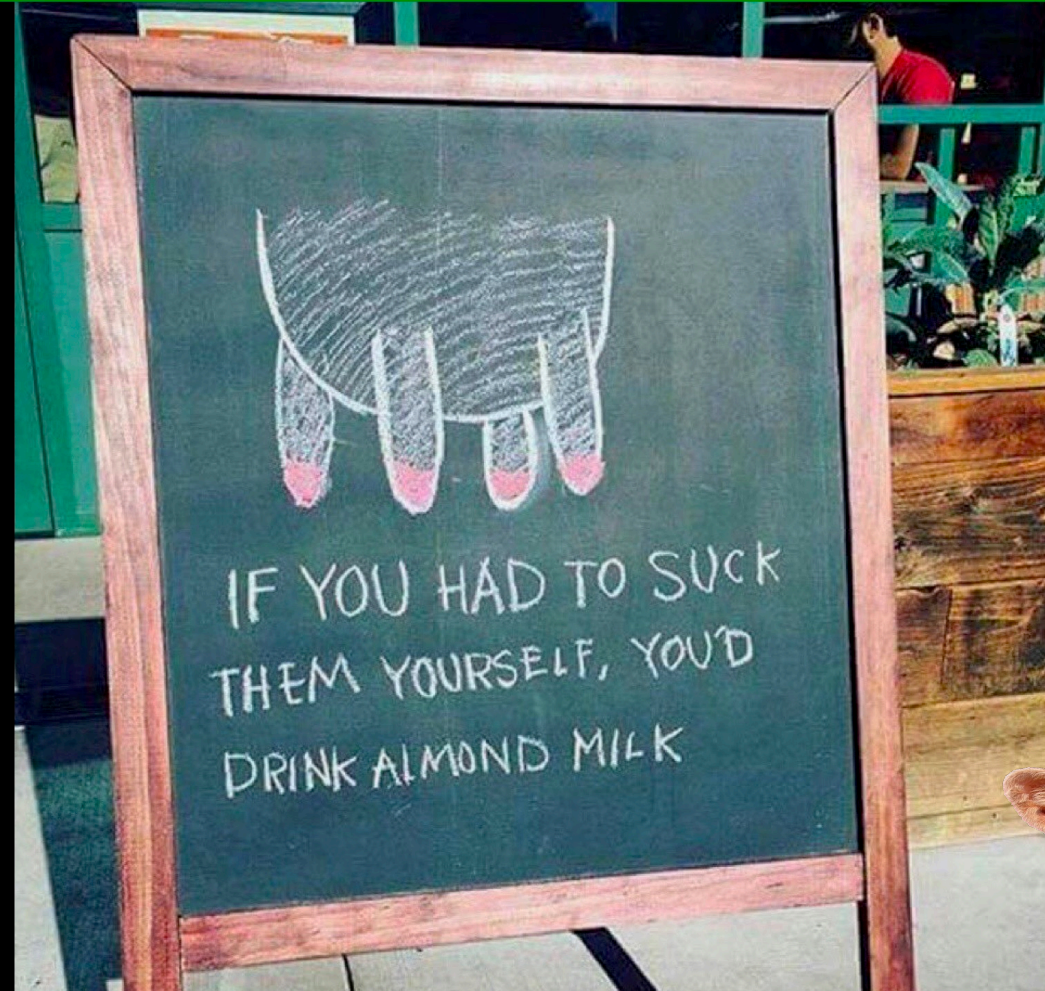 IF YOU HAD TO SUCK
THEM YOURSELF, YOU'D
DRINK ALMOND MILK